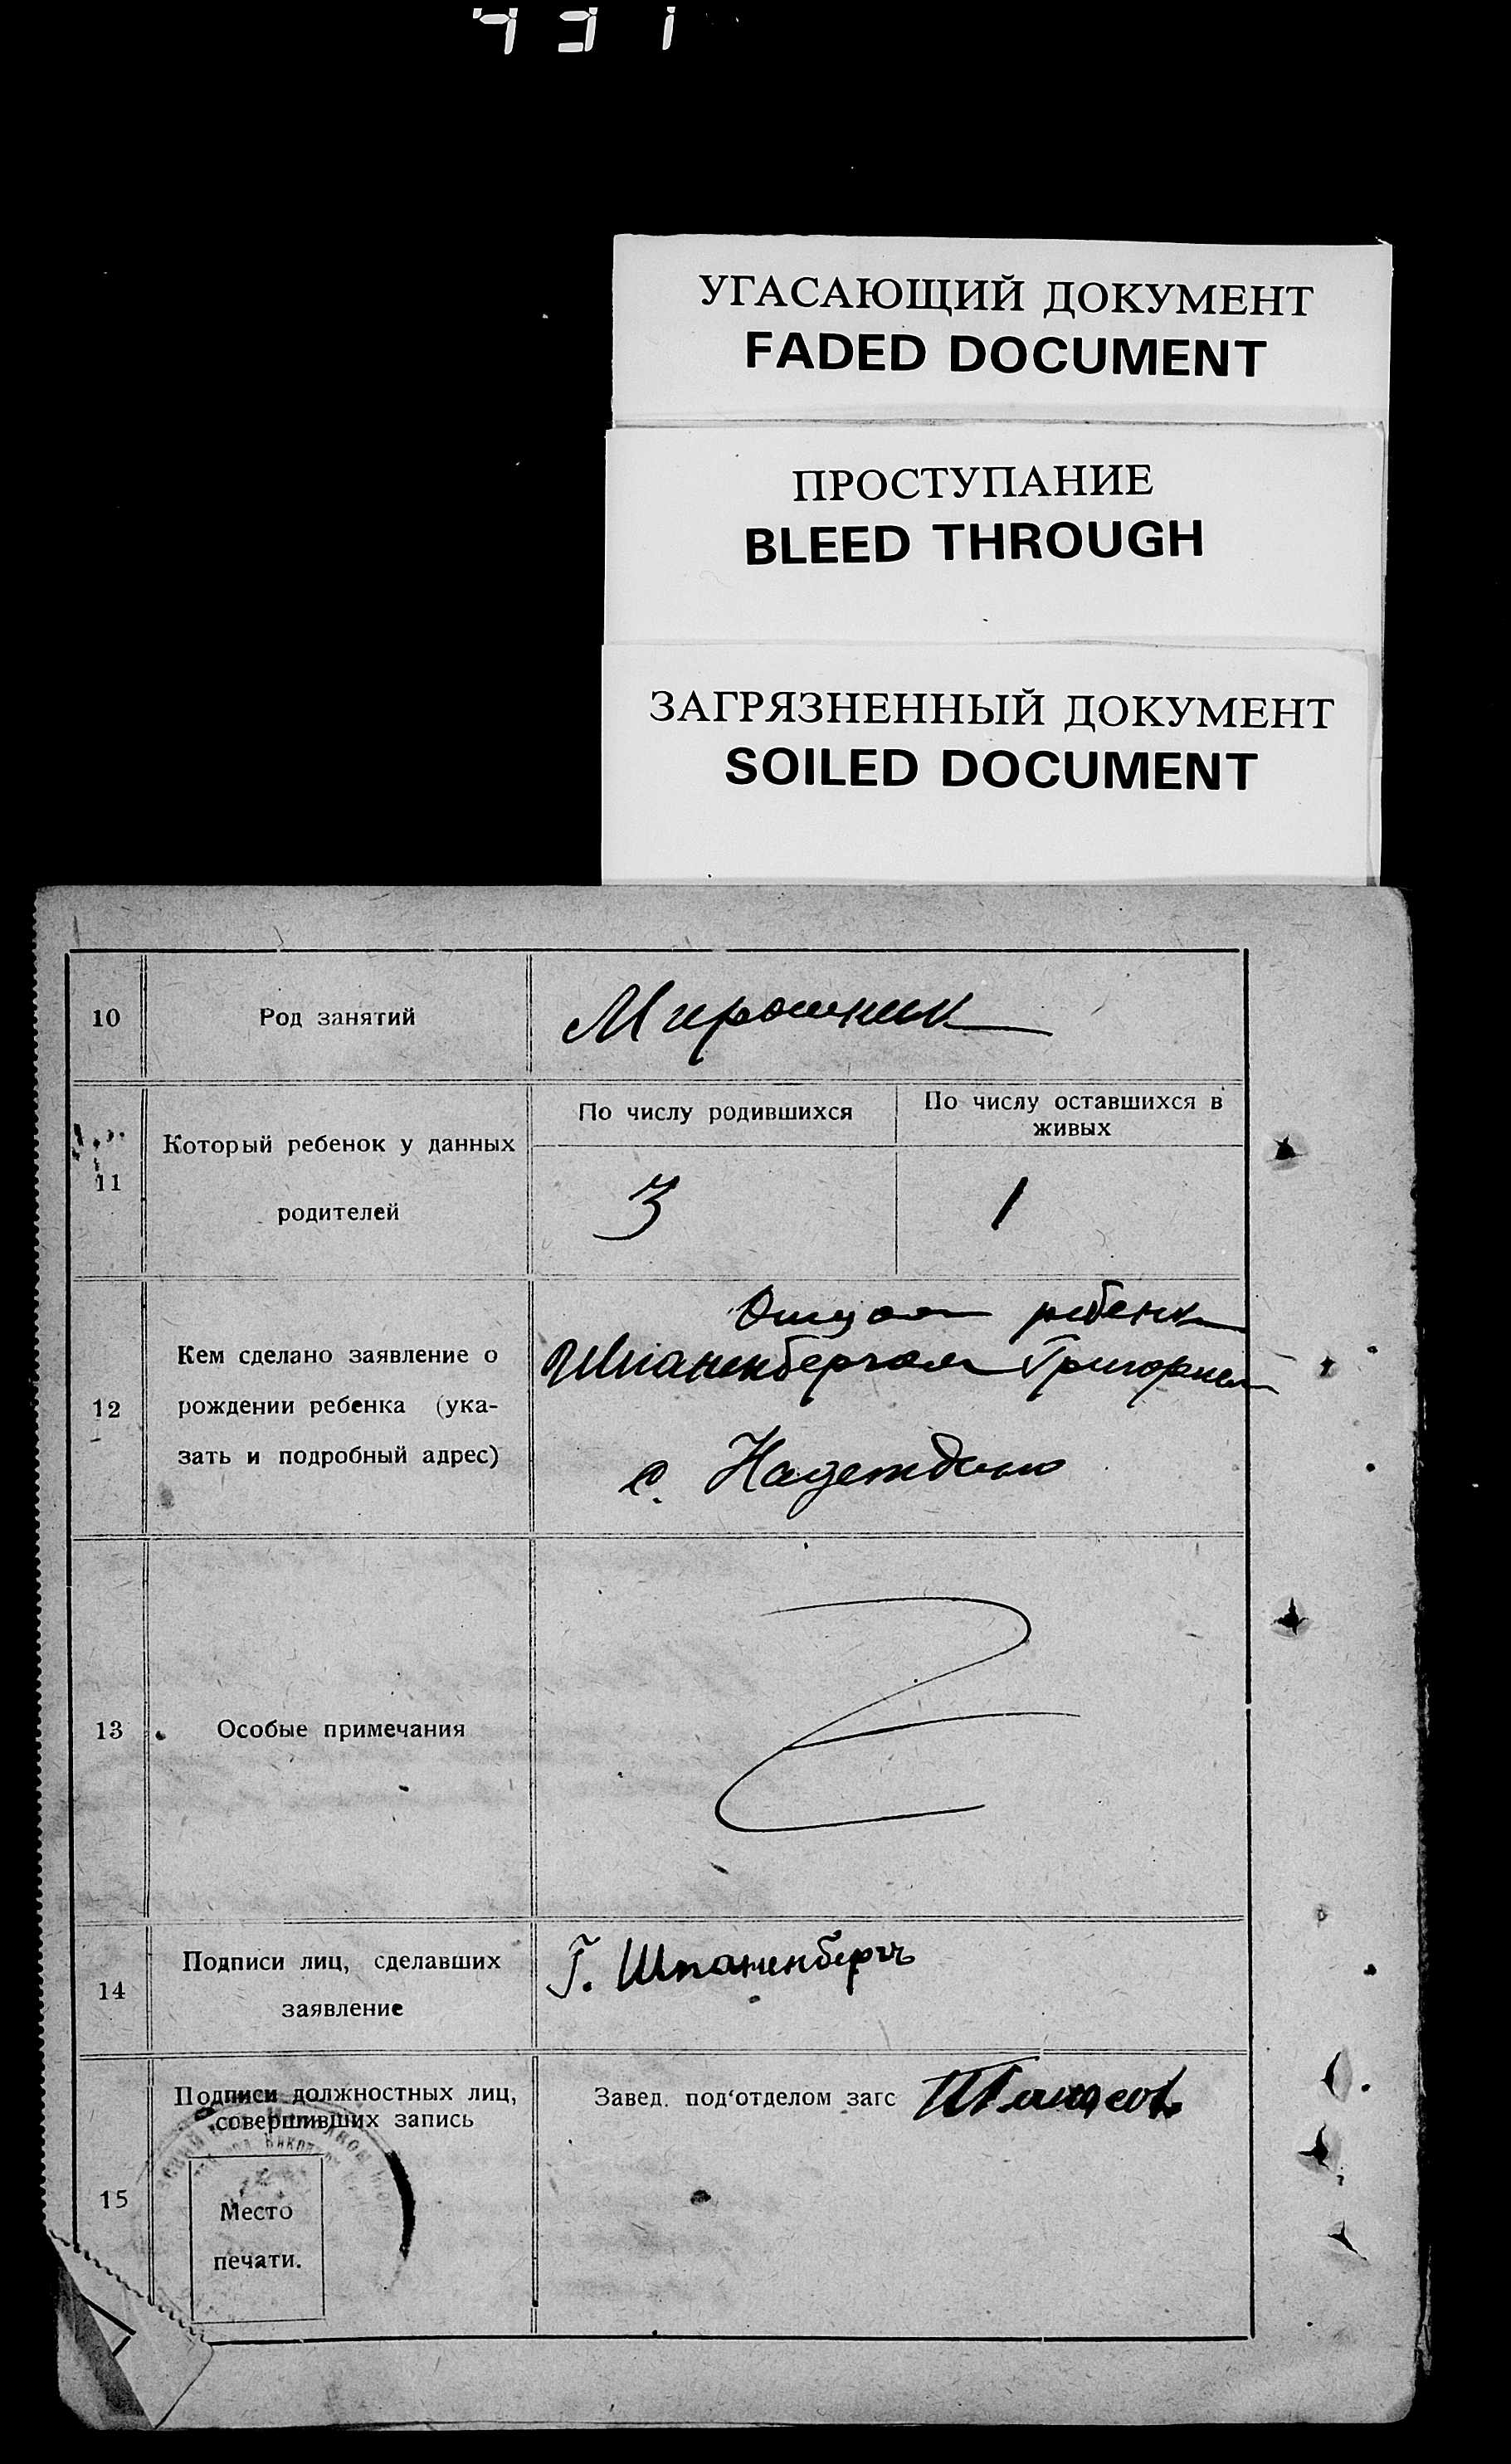 431
УГАСАЮЩИЙ ДОКУМЕНТ
FADED DOCUMENT
ПРОСТУПАНИЕ
BLEED THROUGH
ЗАГРЯЗНЕННЫЙ ДОКУМЕНТ
SOILED DOCUMENT
10
Род занятий
Мирошник
11
Который ребенок у данных
родителей
По числу родившихся
По числу оставшихся в
живых
3
1
12
Кем сделано заявление о
рождении ребенка (ука-
зать и подробный адрес)
Отцом ребенка
Шпаненбергом Григорием
с. Надеждино
13
Особые примечания
14
Подписи лиц, сделавших
заявление
Г. Шпаненбергъ
15
Подписи должностных лиц,
совершивших запись
Место
печати.
Завед. под'отделом загс